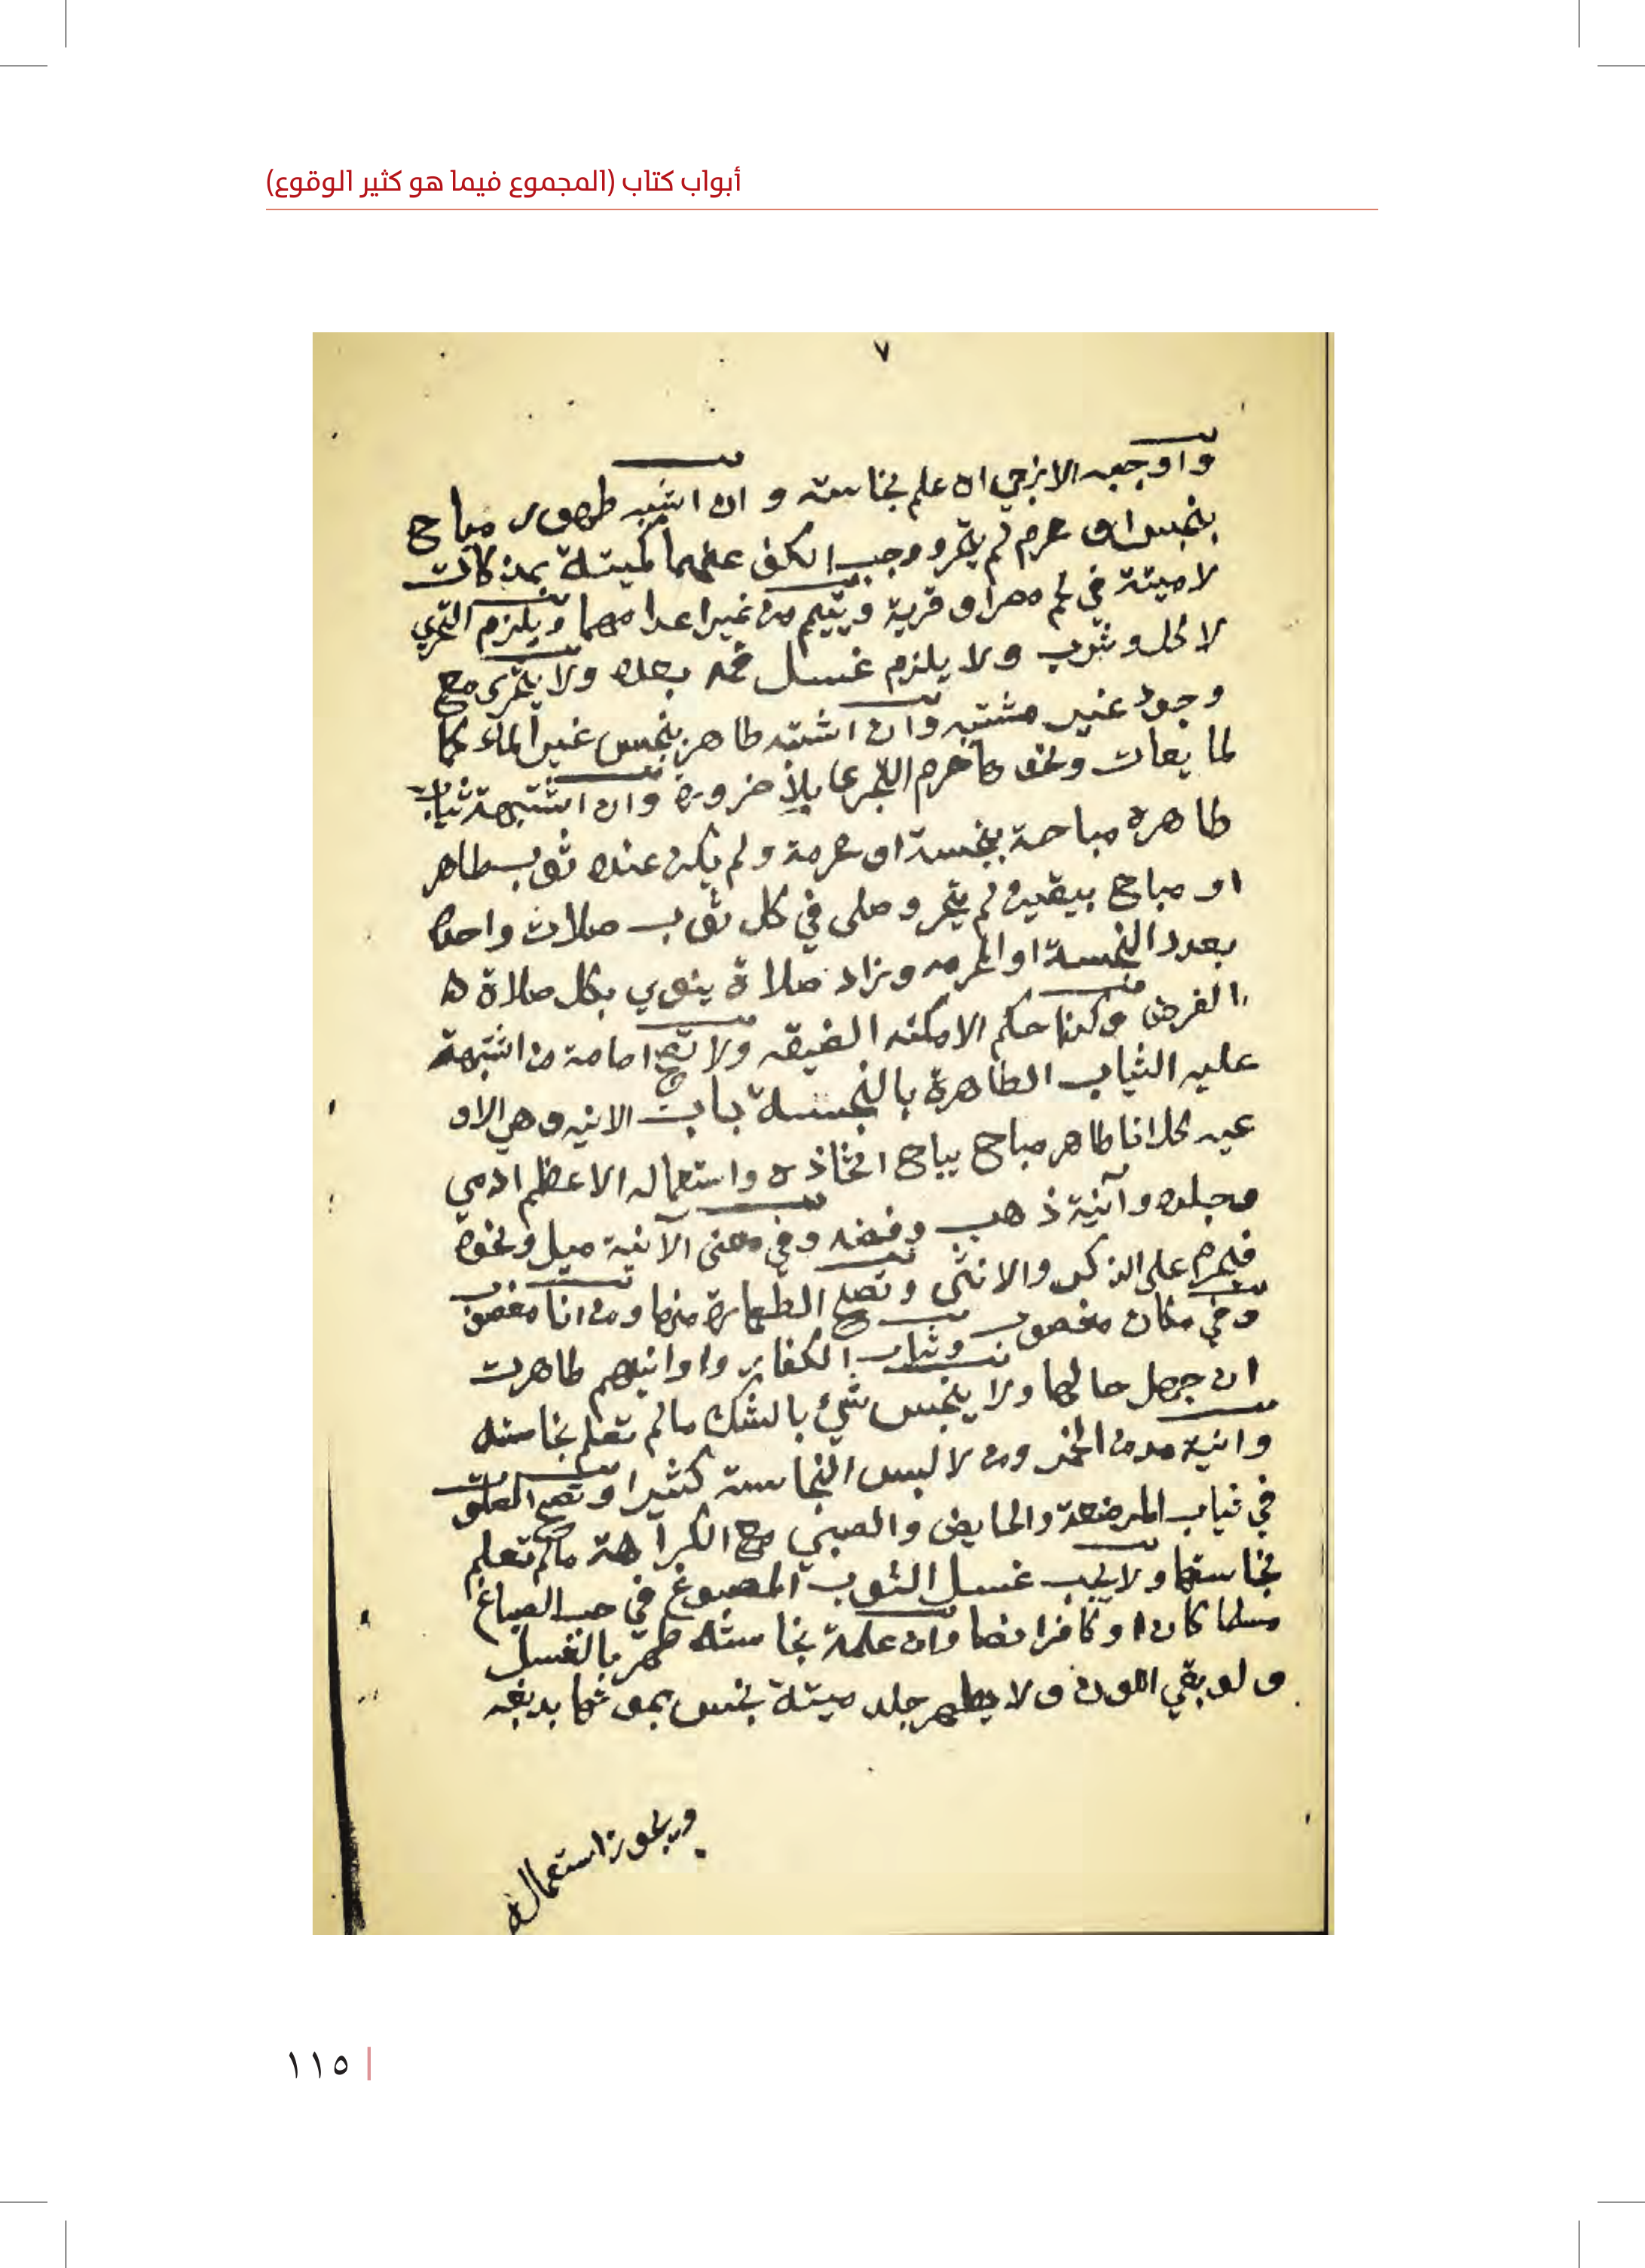 أبواب كتاب (المجموع فيما هو كثير الوقوع)
٧
واوجبه الازجي ان علم نجاسته وان اشتبه طهور مباح
بنجس او محرم لم يتحر ووجب الكف عنهما كميتة بمذكات
لا ميتة في لحم مصر او قرية ويتيمم من غير اعدامهما ويلزم التحري
لاكل وشرب ولا يلزم غسل فمه بعده ولا يتحرى مع
وجود غير مشتبه وان اشتبه طاهر بنجس غير الماء كا
لمايعات ونحوها حرم التحري بلا ضرورة وان اشتبهة ثياب
طاهره مباحة بنجسة او محرمة ولم يكن عنده ثوب طاهر
او مباح بيقين لم يتحر وصلى في كل ثوب صلات واحدة
بعدد النجسة او المحرمه وزاد صلاة ينوي بكل صلاة ه
الفرض وكذا حكم الامكنه الضيقه ولا تصح امامة من اشتبهة
عليه الثياب الطاهرة بالنجسة باب الانيه وهي الاو
عيه كل انا طاهر مباح يباح اتخاذه واستعماله الا عظم ادمي
وجلده وآنية ذهب وفضه وفي معنى الآنية ميل ونحوه
فيحرم على الذكر والانثى وتصح الطهارة منها ومن انا مغصوب
وفي مكان مغصوب وثياب الكفار واوانيهم طاهرت
ان جهل حالها ولا ينجس شيء بالشك مالم تعلم نجاسته
وانية مدمن الخمر ومن لابس النجاسة كثيرا وتصح الصلوة
في ثياب المرضعة والحايض والصبي مع الكراهة مالم تعلم
نجاستها ولا يجب غسل الثوب المصبوغ في حب الصباغ
مسلما كان او كافرا نصا وان علمة نجاسته طهر بالغسل
ولو بقي اللون ولا يطهر جلد ميتة نجس بموتها بدبغه
ويجوز استعماله
١١٥